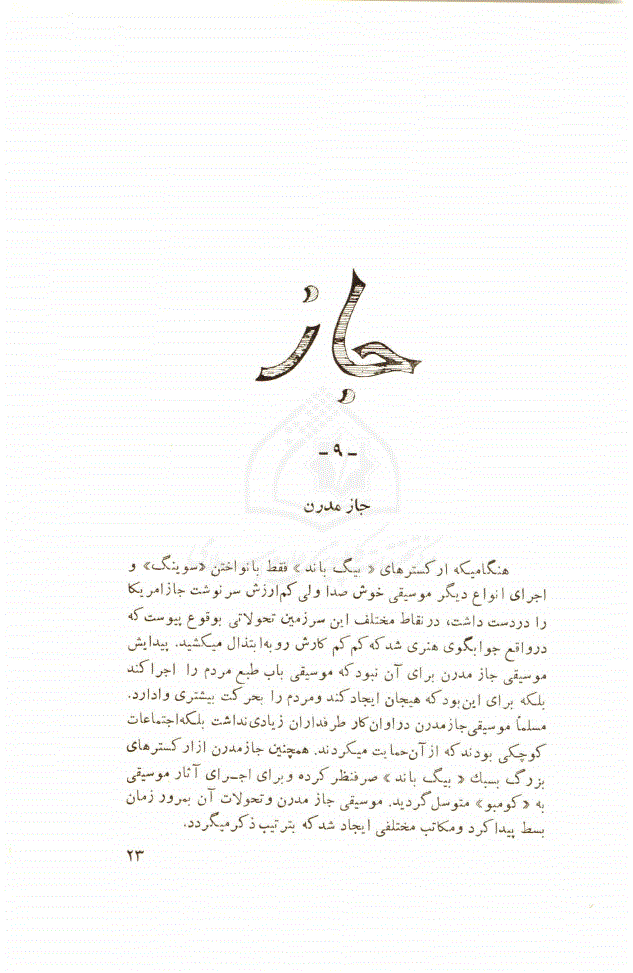 جاز
- ۹ -
جاز مدرن
هنگامیکه ارکسترهای « بیگ باند » فقط بانواختن «سوینگ» و
اجرای انواع دیگر موسیقی خوش صدا ولی کم‌ارزش سرنوشت جازامریکا
را دردست داشت، درنقاط مختلف این سرزمین تحولاتی بوقوع پیوست که
درواقع جوابگوی هنری شدکه کم کم کارش روبه‌ابتذال میکشید. پیدایش
موسیقی جاز مدرن برای آن نبودکه موسیقی باب طبع مردم را اجراکند
بلکه برای این‌بودکه هیجان ایجادکند ومردم را بحرکت بیشتری وادارد.
مسلماً موسیقی‌جازمدرن دراوان‌کار طرفداران زیادی‌نداشت بلکه‌اجتماعات
کوچکی بودندکه ازآن‌حمایت میکردند. همچنین جازمدرن ازارکسترهای
بزرگ بسبك « بیگ باند » صرفنظرکرده وبرای اجـرای آثار موسیقی
به «کومبو» متوسل‌گردید. موسیقی جاز مدرن وتحولات آن بمرور زمان
بسط پیداکرد ومکاتب مختلفی ایجاد شدکه بترتیب ذکرمیگردد.
۲۳